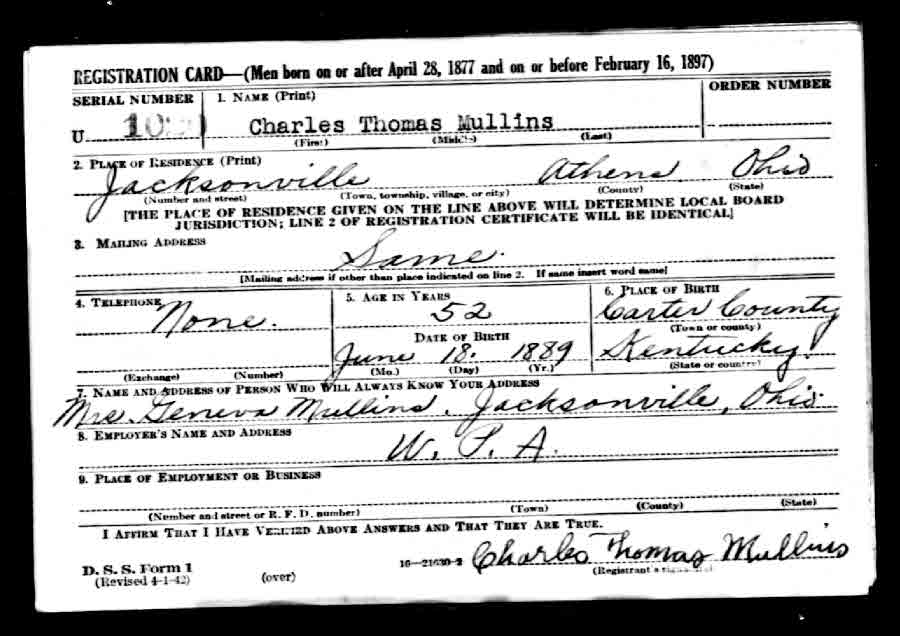 REGISTRATION CARD—(Men born on or after April 28, 1877 and on or before February 16, 1897)
SERIAL NUMBER 1. NAME (Print) ORDER NUMBER
U Charles Thomas Mullins
(First) (Middle) (Last)
2. PLACE OF RESIDENCE (Print)
Jacksonville Athens Ohio
(Number and street) (Town, township, village, or city) (County) (State)
[THE PLACE OF RESIDENCE GIVEN ON THE LINE ABOVE WILL DETERMINE LOCAL BOARD
JURISDICTION; LINE 2 OF REGISTRATION CERTIFICATE WILL BE IDENTICAL]
3. MAILING ADDRESS
Same.
[Mailing address if other than place indicated on line 2. If same insert word same]
4. TELEPHONE 5. AGE IN YEARS 6. PLACE OF BIRTH
None. 52 Carter County
DATE OF BIRTH (Town or county)
June 18. 1889 Kentucky.
(Exchange) (Number) (Mo.) (Day) (Yr.) (State or country)
7. NAME AND ADDRESS OF PERSON WHO WILL ALWAYS KNOW YOUR ADDRESS
Mrs. Geneva Mullins. Jacksonville, Ohio.
8. EMPLOYER'S NAME AND ADDRESS
W. P. A.
9. PLACE OF EMPLOYMENT OR BUSINESS
(Number and street or R. F. D. number) (Town) (County) (State)
I AFFIRM THAT I HAVE VERIFIED ABOVE ANSWERS AND THAT THEY ARE TRUE.
D. S. S. Form 1
(Revised 4-1-42) (over) 16—21630-2 Charles Thomas Mullins
(Registrant's signature)